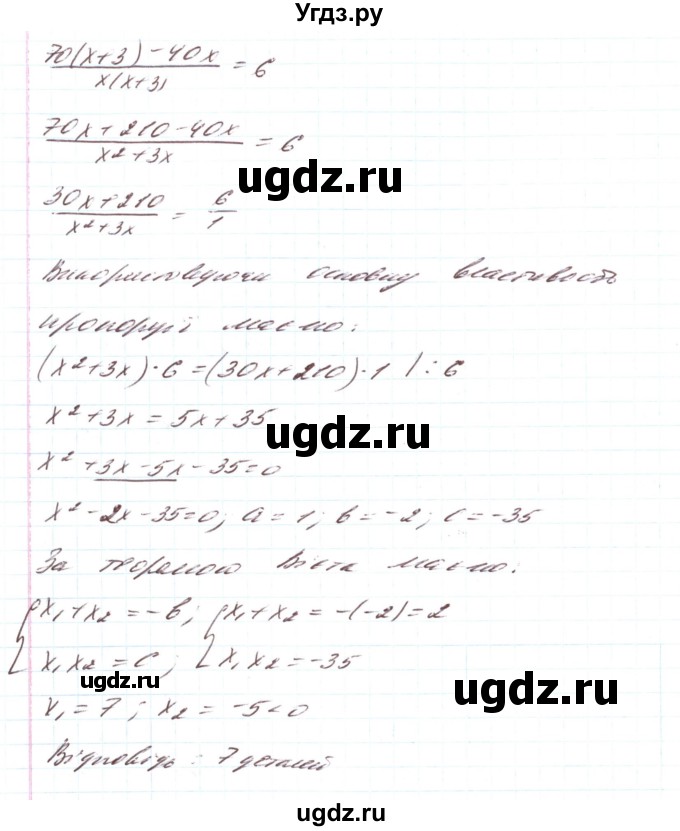 Угдз.ру
70(x+3)-40x / x(x+3) = 6
70x+210-40x / x²+3x = 6
ugdz.ru
30x+210 / x²+3x = 6/1
Використовуючи основну властивість
пропорції маємо:
(x²+3x)·6=(30x+210)·1 |:6
x²+3x=5x+35
ugdz.ru
x²+3x-5x-35=0
x²-2x-35=0; a=1; b=-2; c=-35
За теоремою Вієта маємо:
{x₁+x₂=-b; {x₁+x₂=-(-2)=2
x₁x₂=c; x₁x₂=-35
ugdz.ru
ugdz.ru
x₁=7; x₂=-5<0
Відповідь: 7 деталей
ugdz.ru